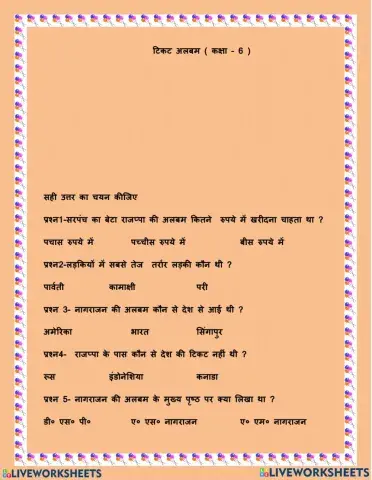 टिकट अलबम ( कक्षा - 6 )
सही उत्तर का चयन कीजिए
प्रश्न1-सरपंच का बेटा राजप्पा की अलबम कितने रुपये में खरीदना चाहता था ?
पचास रुपये में पच्चीस रुपये में बीस रुपये में
प्रश्न2-लड़कियों में सबसे तेज तर्रार लड़की कौन थी ?
पार्वती कामाक्षी परी
प्रश्न 3- नागराजन की अलबम कौन से देश से आई थी ?
अमेरिका भारत सिंगापुर
प्रश्न4- राजप्पा के पास कौन से देश की टिकट नहीं थी ?
रूस इंडोनेशिया कनाडा
प्रश्न 5- नागराजन की अलबम के मुख्य पृष्ठ पर क्या लिखा था ?
डी० एस० पी० ए० एस० नागराजन ए० एम० नागराजन
LIVEWORKSHEETS LIVEWORKSHEETS